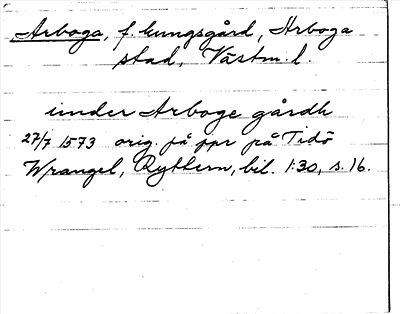 Arboga, f. kungsgård, Arboga
stad, Västm. l.
under Arboge gårdh
27/7 1573 orig. på ppr på Tidö
Wrangel, Ryttern, bil. 1:30, s. 16.